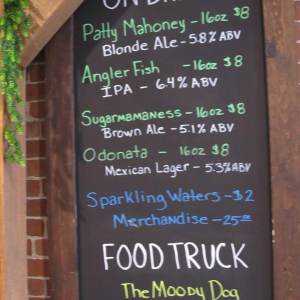 ON DRA
Patty Mahoney - 16oz $8
Blonde Ale - 5.8% ABV
Angler Fish - 16oz $8
IPA - 6.4% ABV
Sugarmamaness - 16oz $8
Brown Ale - 5.1% ABV
Odonata - 16oz $8
Mexican Lager - 5.3% ABV
Sparkling Waters - $2
Merchandise - 25.00
FOOD TRUCK
The Moody Dog